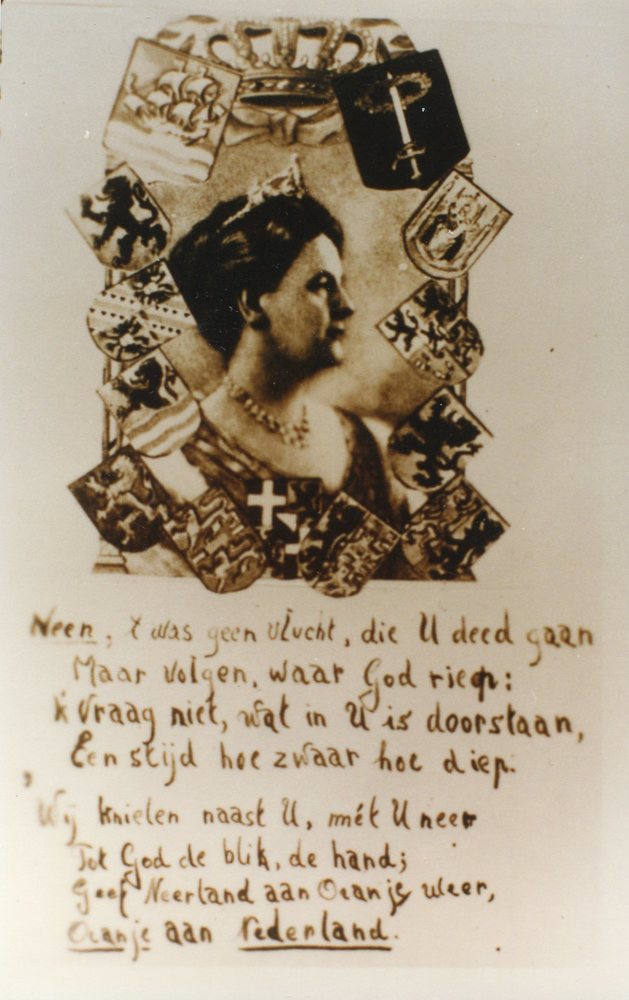 Neen, 't was geen vlucht, die U deed gaan
Maar volgen, waar God riep:
'k Vraag niet, wat in U is doorstaan,
Een stijd hoe zwaar hoe diep.
Wij knielen naast U, mét U neer
Tot God de blik, de hand;
Geef Neerland aan Oranje weer,
Oranje aan Nederland.